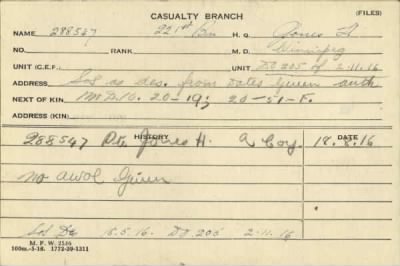 CASUALTY BRANCH (FILES)
NAME 288547 221st Bn H. Q. Jones H.
NO. RANK M. D. Winnipeg
UNIT (C.E.F.) UNIT DO 205 of 2-11-16
ADDRESS Sos as des. from Dates Given auth
NEXT OF KIN M.D.10. 20-19; 20-51-F.
ADDRESS (KIN)
HISTORY DATE
288547 Pte Jones H. A Coy. 18.8.16
No awol Given
Sos De 15.5.16. DO 205 2-11-16
M. F. W. 2536
100m.-5-18. 1772-39-1311